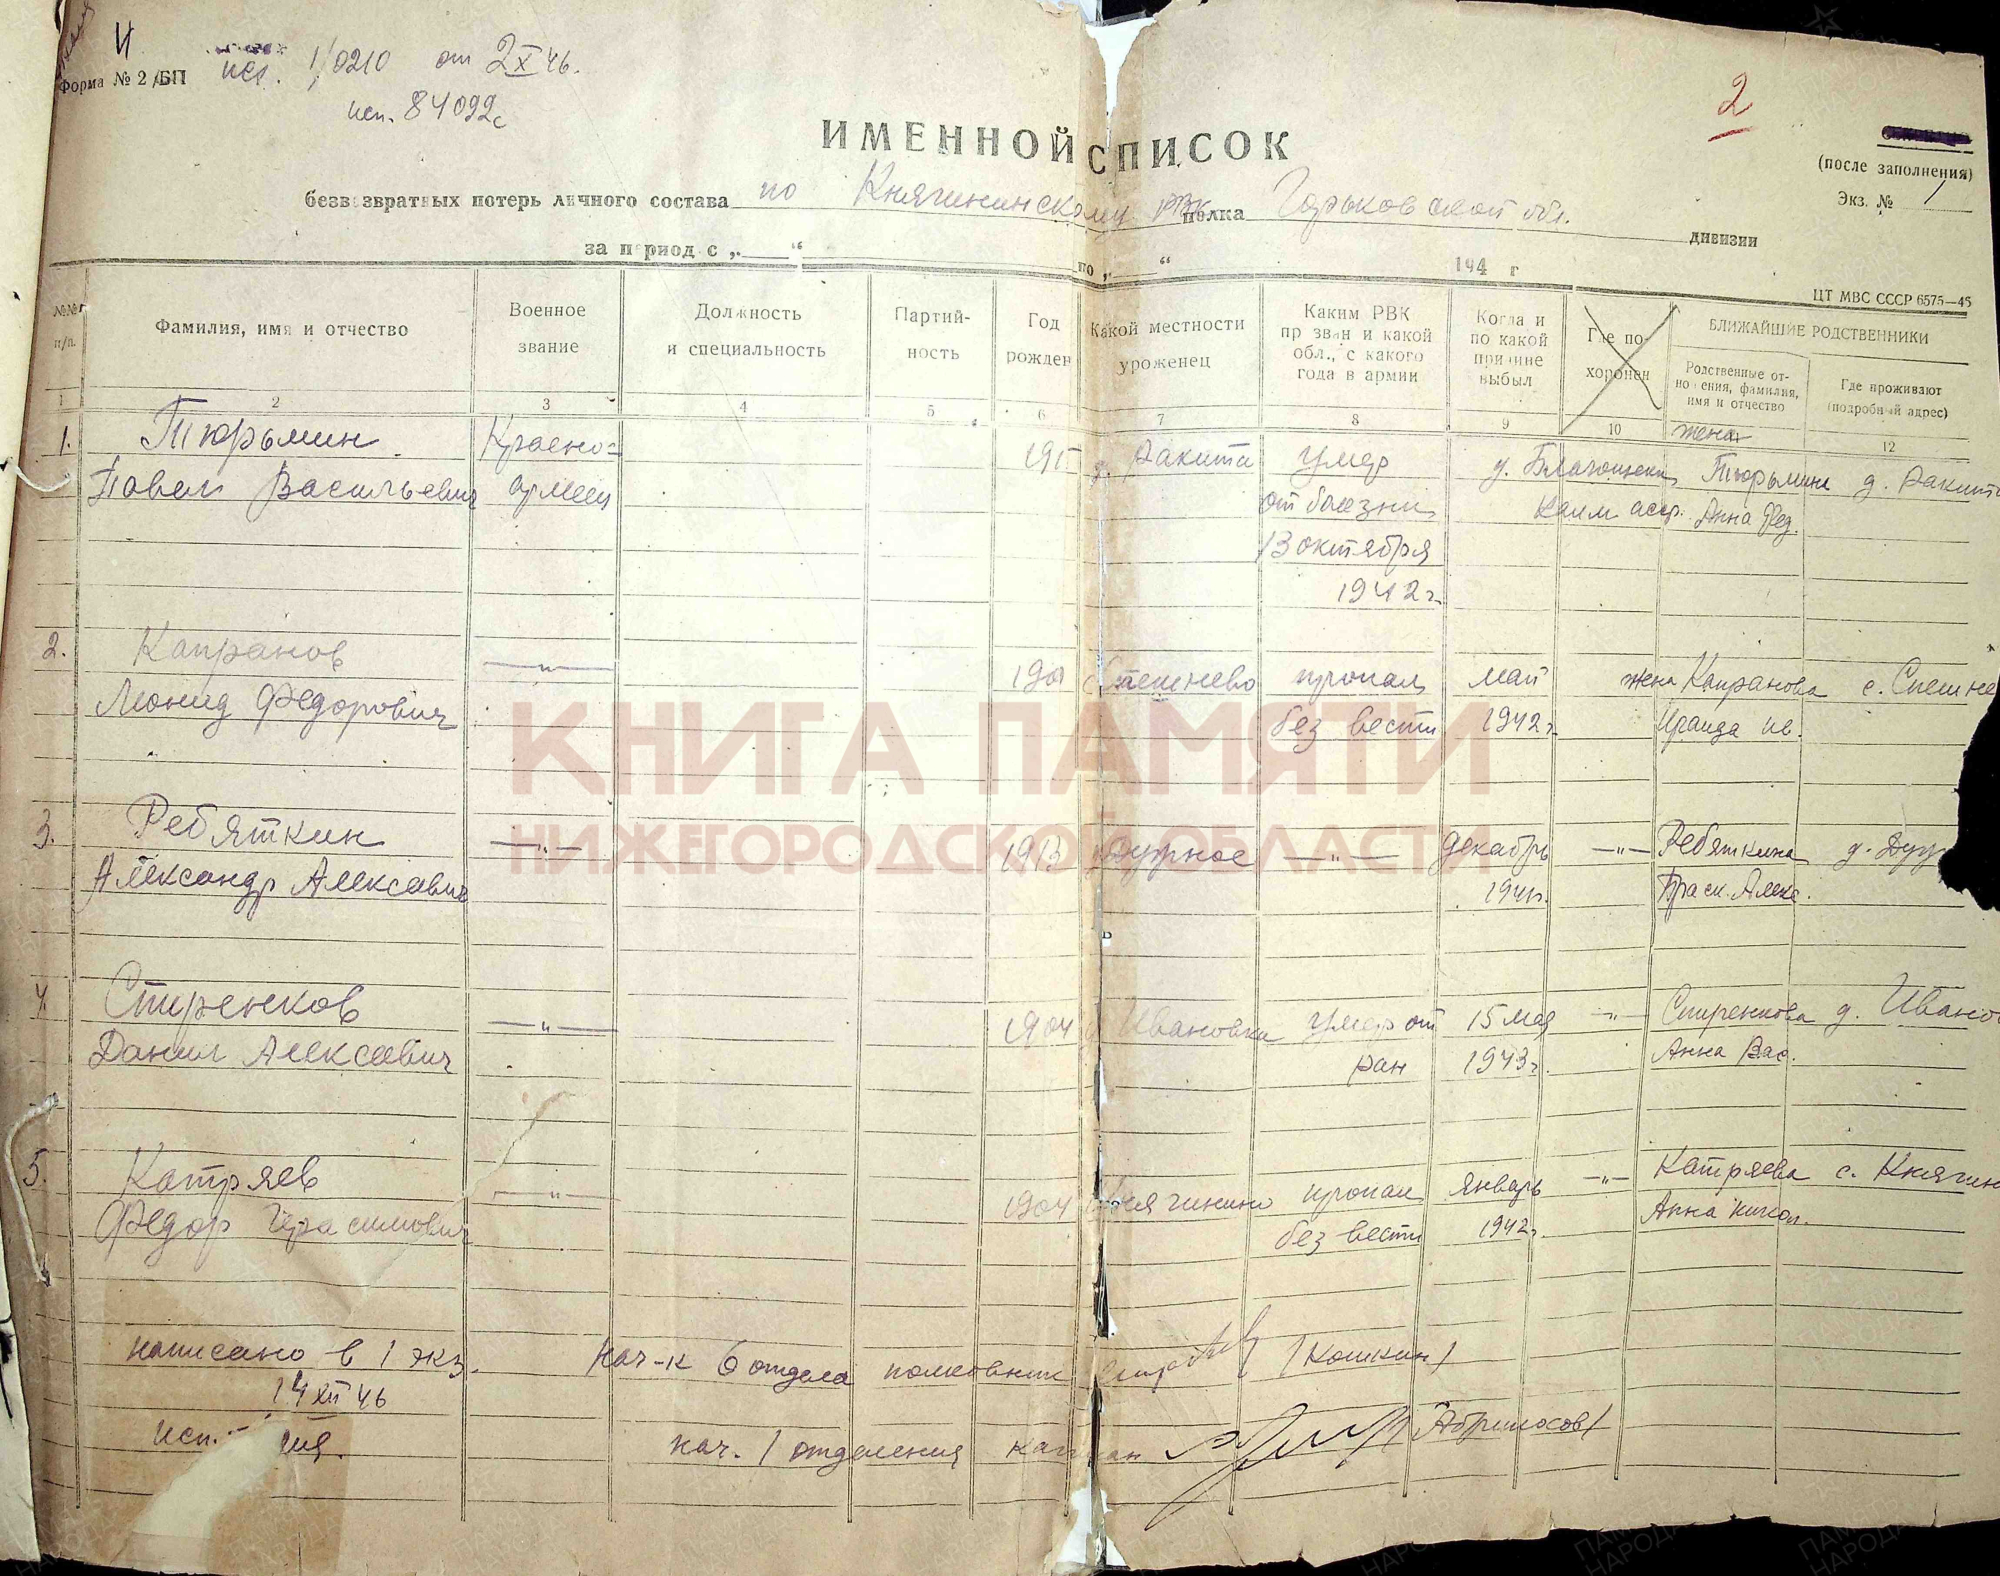 Форма № 2/БП
исх. 1/0210 от 2 X 46.
исп. 84022с
2
ИМЕННОЙ СПИСОК
(после заполнения)
Экз. № 1
безвозвратных потерь личного состава по Княгининскому РВК полка Горьковской обл. дивизии
за период с „ “ по „ “ 194 г
ЦТ МВС СССР 6575—45
№№ п/п.
Фамилия, имя и отчество
Военное звание
Должность и специальность
Партий-ность
Год рожден
Какой местности уроженец
Каким РВК призван и какой обл., с какого года в армии
Когда и по какой причине выбыл
Где по-хоронен
БЛИЖАЙШИЕ РОДСТВЕННИКИ
Родственные от-ношения, фамилия, имя и отчество
Где проживают (подробный адрес)
1 2 3 4 5 6 7 8 9 10 12
жена
1. Тюрьмин Красно= 191 д. Ракита умер г. Благовещенск Тюрьмина д. Ракит
Павел Васильевич армеец от болезни Анна Фед.
13 октября
1942 г.
2. Капранов —„— 190 Спешнево пропал май жена Капранова с. Спешне
Леонид Федорович без вести 1942 г. Ираида Ив.
КНИГА ПАМЯТИ
НИЖЕГОРОДСКОЙ ОБЛАСТИ
3. Ребяткин —„— 1913 —„— декабрь —„— Ребяткина д.
Александр Алексеевич 1941г. Праск. Алекс.
4. Спиренков —„— 1904 Ивановка умер от 15 мая —„— Спиренкова д. Ивано
Данил Алексеевич ран 1943г. Анна Вас.
5. Катряев —„— 1904 Княгинино пропал январь —„— Катряева с. Княгин
Федор Герасимович без вести 1942г. Анна Никол.
написано в 1 экз. Нач-к 6 отдела полковник /Кошкин/
14 XII 46
исп. нач. 1 отделения капитан /Абрикосов/